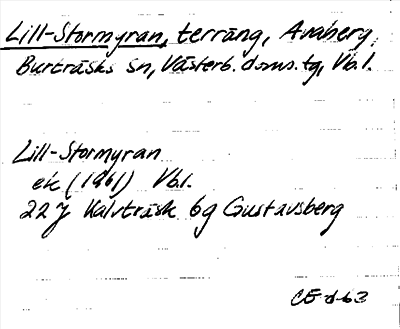 Lill-Stormyran, terräng, Avaberg,
Burträsks sn, Västerb. doms.tg, Vb.l.
Lill-Stormyran
ek (1961) Vb.l.
22 J Kalvträsk 6g Gustavsberg